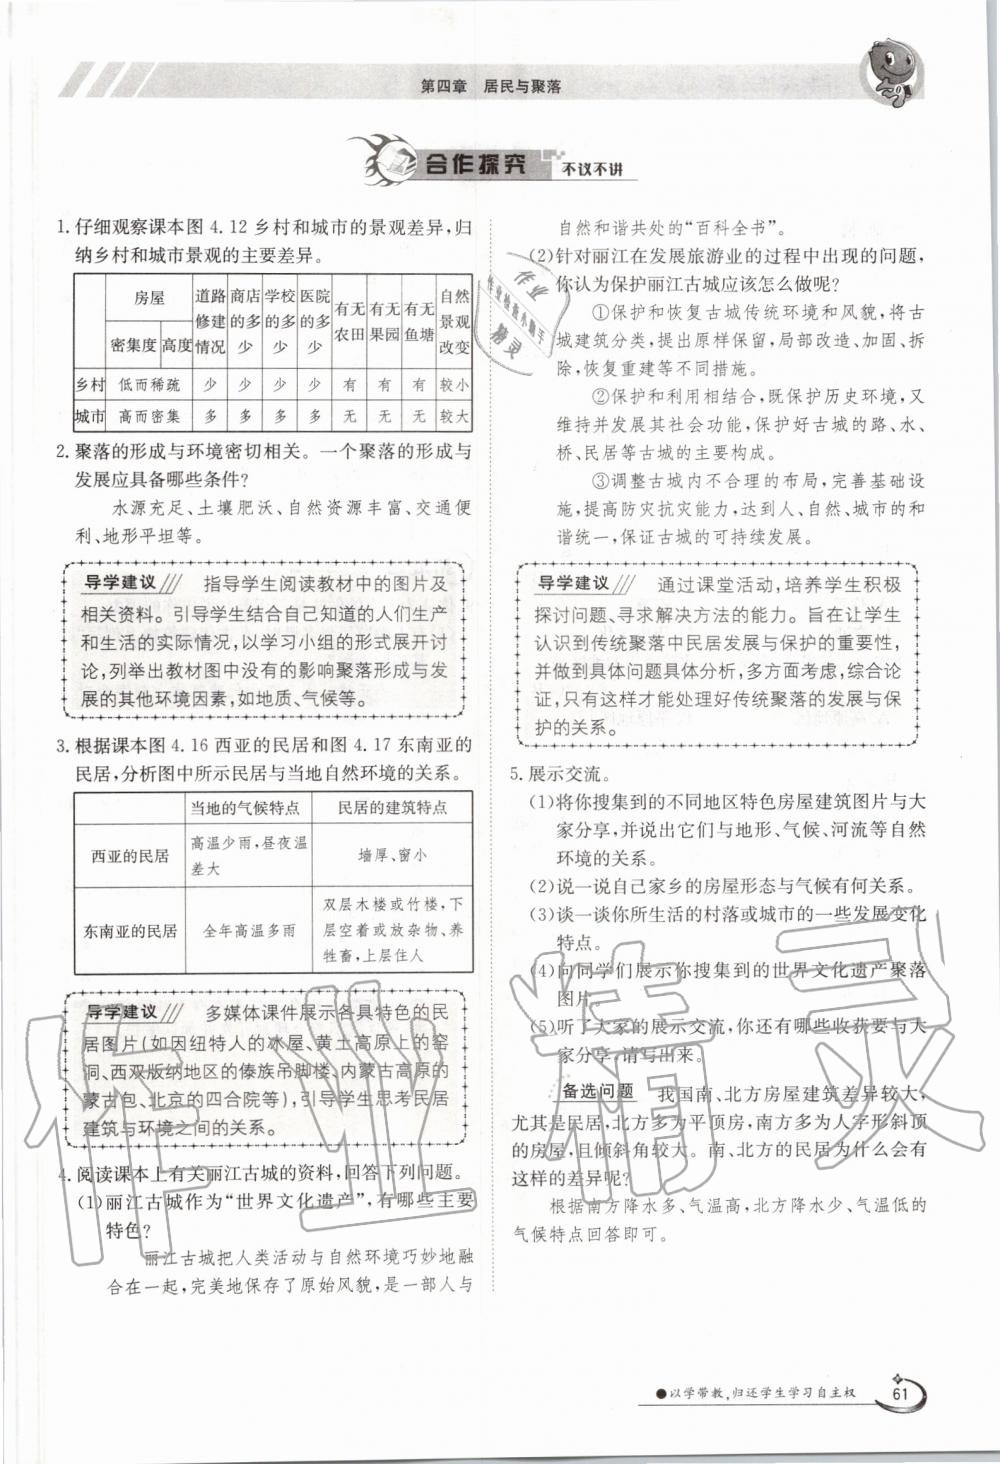 第四章 居民与聚落
合作探究 不议不讲
1. 仔细观察课本图 4.12 乡村和城市的景观差异,归
纳乡村和城市景观的主要差异。
房屋 道路修建情况 商店的多少 学校的多少 医院的多少 有无农田 有无果园 有无鱼塘 自然景观改变
密集度 高度
乡村 低而稀疏 少 少 少 少 有 有 有 较小
城市 高而密集 多 多 多 多 无 无 无 较大
2. 聚落的形成与环境密切相关。一个聚落的形成与
发展应具备哪些条件?
水源充足、土壤肥沃、自然资源丰富、交通便
利、地形平坦等。
导学建议 指导学生阅读教材中的图片及
相关资料。引导学生结合自己知道的人们生产
和生活的实际情况,以学习小组的形式展开讨
论,列举出教材图中没有的影响聚落形成与发
展的其他环境因素,如地质、气候等。
3. 根据课本图 4.16 西亚的民居和图 4.17 东南亚的
民居,分析图中所示民居与当地自然环境的关系。
当地的气候特点 民居的建筑特点
西亚的民居 高温少雨,昼夜温差大 墙厚、窗小
东南亚的民居 全年高温多雨 双层木楼或竹楼,下层空着或放杂物、养牲畜,上层住人
导学建议 多媒体课件展示各具特色的民
居图片(如因纽特人的冰屋、黄土高原上的窑
洞、西双版纳地区的傣族吊脚楼、内蒙古高原的
蒙古包、北京的四合院等),引导学生思考民居
建筑与环境之间的关系。
4. 阅读课本上有关丽江古城的资料,回答下列问题。
(1)丽江古城作为“世界文化遗产”,有哪些主要
特色?
丽江古城把人类活动与自然环境巧妙地融
合在一起,完美地保存了原始风貌,是一部人与
自然和谐共处的“百科全书”。
(2)针对丽江在发展旅游业的过程中出现的问题,
你认为保护丽江古城应该怎么做呢?
①保护和恢复古城传统环境和风貌,将古
城建筑分类,提出原样保留,局部改造、加固、拆
除,恢复重建等不同措施。
②保护和利用相结合,既保护历史环境,又
维持并发展其社会功能,保护好古城的路、水、
桥、民居等古城的主要构成。
③调整古城内不合理的布局,完善基础设
施,提高防灾抗灾能力,达到人、自然、城市的和
谐统一,保证古城的可持续发展。
导学建议 通过课堂活动,培养学生积极
探讨问题、寻求解决方法的能力。旨在让学生
认识到传统聚落中民居发展与保护的重要性,
并做到具体问题具体分析,多方面考虑,综合论
证,只有这样才能处理好传统聚落的发展与保
护的关系。
5. 展示交流。
(1)将你搜集到的不同地区特色房屋建筑图片与大
家分享,并说出它们与地形、气候、河流等自然
环境的关系。
(2)说一说自己家乡的房屋形态与气候有何关系。
(3)谈一谈你所生活的村落或城市的一些发展变化
特点。
(4)向同学们展示你搜集到的世界文化遗产聚落
图片。
(5)听了大家的展示交流,你还有哪些收获要与大
家分享,请写出来。
备选问题 我国南、北方房屋建筑差异较大,
尤其是民居,北方多为平顶房,南方多为人字形斜顶
的房屋,且倾斜角较大。南、北方的民居为什么会有
这样的差异呢?
根据南方降水多、气温高,北方降水少、气温低的
气候特点回答即可。
●以学带教,归还学生学习自主权
61
作业
作业检查小助手
精灵
作业精灵